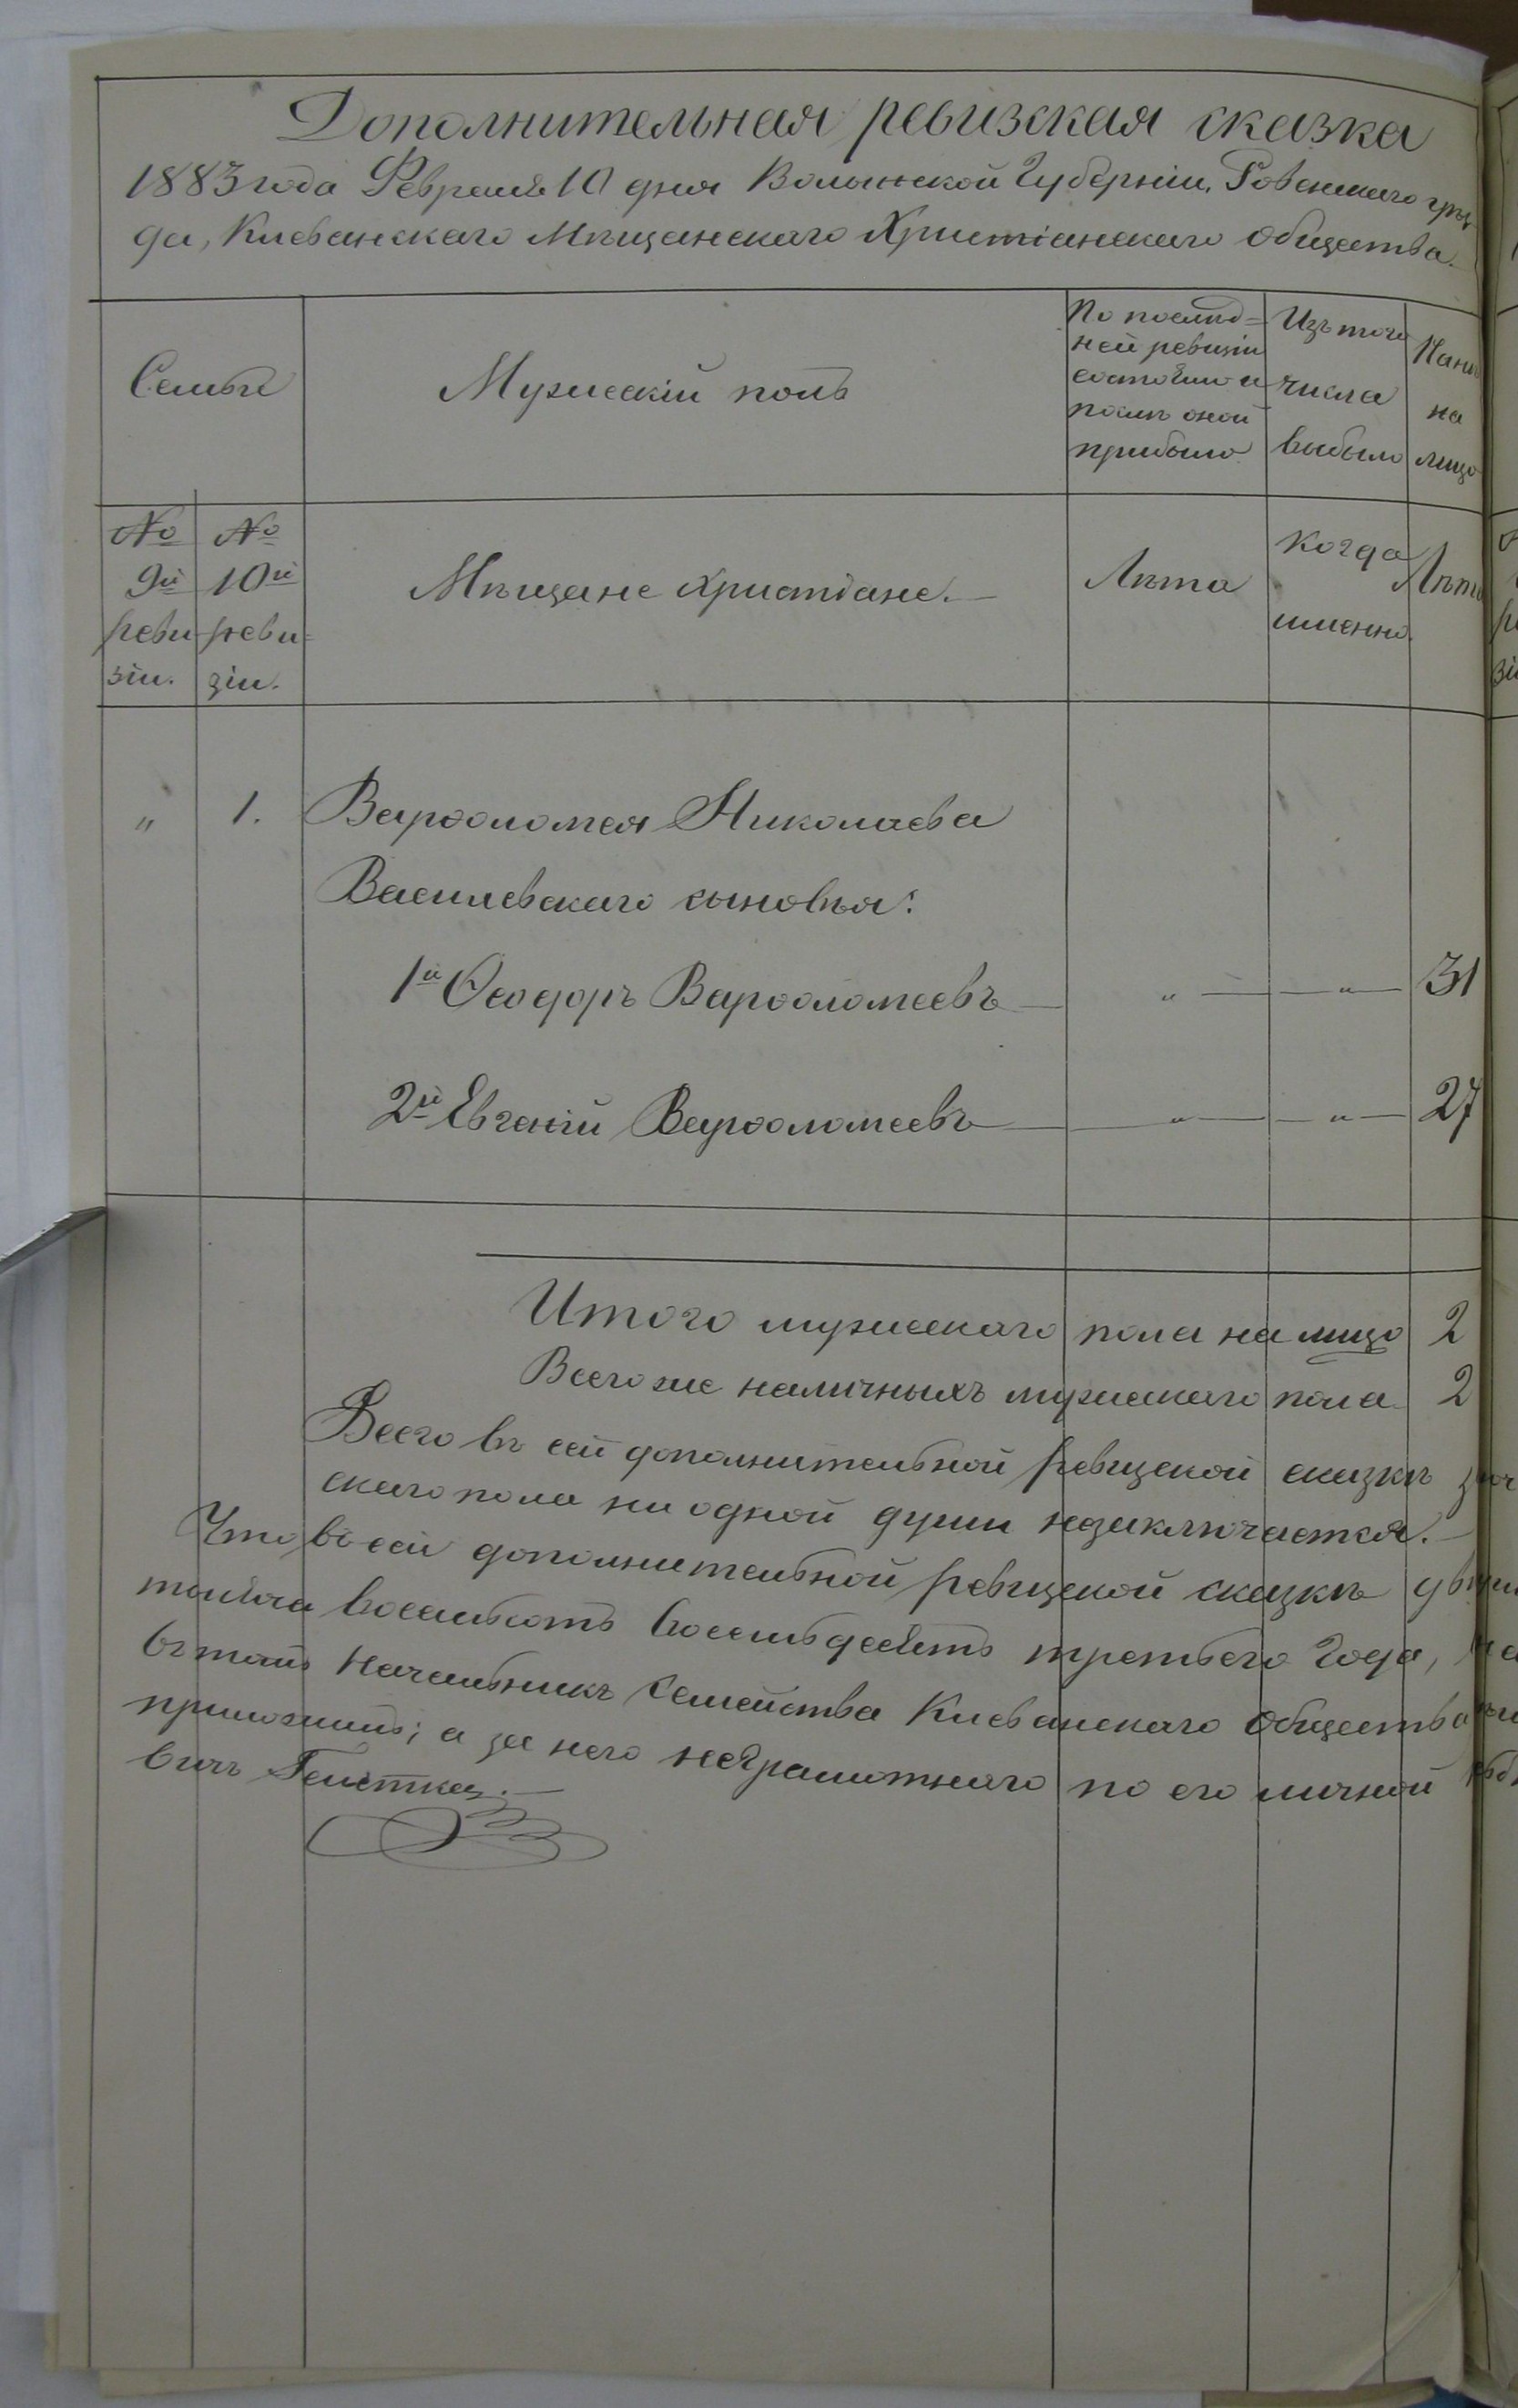 Дополнительная ревизская сказка
1883 года Февраля 10 дня Волынской Губерніи, Ровенскаго уѣз
да, Клеванскаго Мѣщанскаго Христіанскаго общества.
Семьи
Мужескій полъ
По послѣд=
ней ревизіи
состояло и
послѣ оной
прибыло
Изъ того
числа
выбыло
Нынѣ
на
лицо
№ 9й реви зіи.
№ 10й реви= зіи.
Мѣщане христіане.
Лѣта
когда
именно.
Лѣта
" 1. Варѳоломея Николаева
Василевскаго сыновья:
1й Ѳеодоръ Варѳоломеевъ — " — " — 31
2й Евгеній Варѳоломеевъ — " — " — 27
Итого мужескаго пола на лицо 2
Всего же наличныхъ мужескаго пола 2
Всего въ сей дополнительной ревизской сказкѣ
скаго пола ни одной души незаключается.
Что въ сей дополнительной ревизской сказкѣ
тысяча восемьсотъ восемьдесятъ третьего года,
въ томъ Начальникъ семейства Клеванскаго общества
приложилъ; а за него неграмотнаго по его личной
вичъ